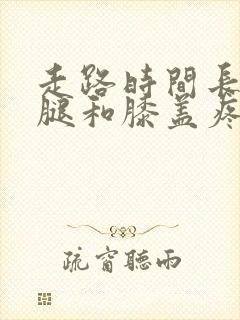 走路時間長
腿和膝盖疼
疏窗聽雨